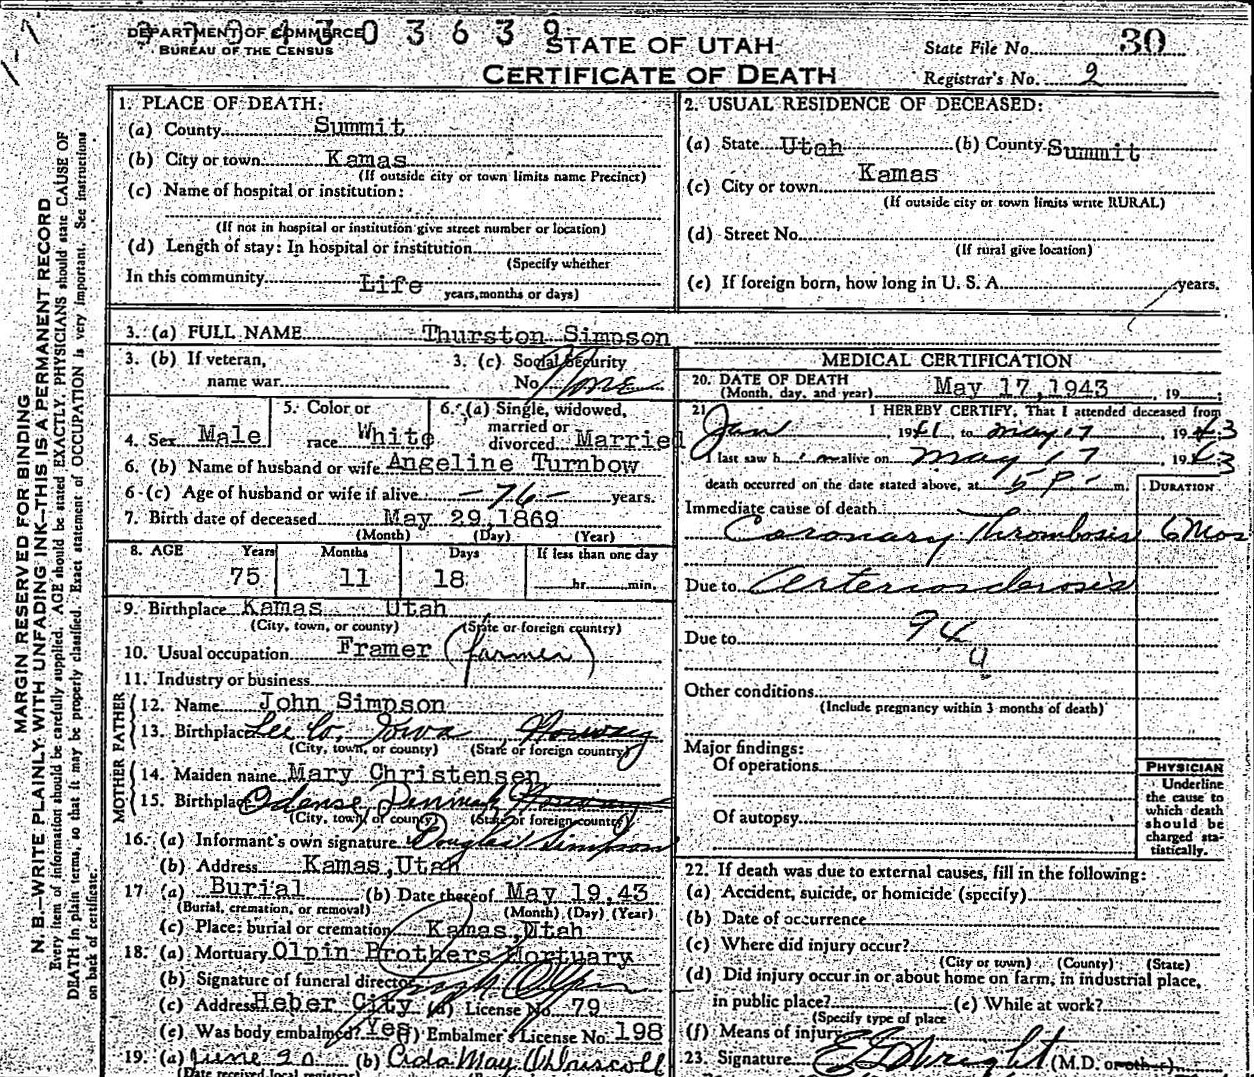 DEPARTMENT OF COMMERCE
BUREAU OF THE CENSUS
0 4 3 0 3 6 3 9
STATE OF UTAH
CERTIFICATE OF DEATH
State File No. 30
Registrar's No. 2
MARGIN RESERVED FOR BINDING
N. B.—WRITE PLAINLY, WITH UNFADING INK—THIS IS A PERMANENT RECORD
Every item of information should be carefully supplied. AGE should be stated EXACTLY. PHYSICIANS should state CAUSE OF
DEATH in plain terms, so that it may be properly classified. Exact statement of OCCUPATION is very important. See instructions
on back of certificate.
1. PLACE OF DEATH:
(a) County Summit
(b) City or town Kamas
(If outside city or town limits name Precinct)
(c) Name of hospital or institution:
(If not in hospital or institution give street number or location)
(d) Length of stay: In hospital or institution
(Specify whether
In this community Life
years, months or days)
2. USUAL RESIDENCE OF DECEASED:
(a) State Utah (b) County Summit
(c) City or town Kamas
(If outside city or town limits write RURAL)
(d) Street No.
(If rural give location)
(e) If foreign born, how long in U. S. A. years.
3. (a) FULL NAME Thurston Simpson
3. (b) If veteran,
name war
3. (c) Social Security
No. None
4. Sex Male
5. Color or
race White
6. (a) Single, widowed,
married or
divorced Married
6. (b) Name of husband or wife Angeline Turnbow
6 (c) Age of husband or wife if alive -76- years.
7. Birth date of deceased May 29,1869
(Month) (Day) (Year)
8. AGE Years Months Days If less than one day
75 11 18 hr. min.
9. Birthplace Kamas Utah
(City, town, or county) (State or foreign country)
10. Usual occupation Framer (farmer)
11. Industry or business
FATHER
12. Name John Simpson
13. Birthplace Lee Co. Iowa Norway
(City, town, or county) (State or foreign country)
MOTHER
14. Maiden name Mary Christensen
15. Birthplace Odense, Denmark Norway
(City, town, or county) (State or foreign country)
16. (a) Informant's own signature Douglas Simpson
(b) Address Kamas, Utah
17 (a) Burial (b) Date thereof May 19,43
(Burial, cremation, or removal) (Month) (Day) (Year)
(c) Place: burial or cremation Kamas, Utah
18. (a) Mortuary Olpin Brothers Mortuary
(b) Signature of funeral director Olpin
(c) Address Heber City (d) License No. 79
(e) Was body embalmed? Yes (f) Embalmer's License No. 198
19. (a) June 20 (b) Ada May O'Driscoll
(Date received local registrar)
MEDICAL CERTIFICATION
20. DATE OF DEATH
(Month, day, and year) May 17,1943 , 19
21 I HEREBY CERTIFY, That I attended deceased from
Jan , 1941, to May 17 , 1943
I last saw him alive on May 17 , 1943
death occurred on the date stated above, at 5 P m. DURATION
Immediate cause of death
Coronary Thrombosis 6 Mos
Due to Arteriosclerosis
94
Due to
a
Other conditions
(Include pregnancy within 3 months of death)
Major findings:
Of operations
Of autopsy
PHYSICIAN
Underline
the cause to
which death
should be
charged sta-
tistically.
22. If death was due to external causes, fill in the following:
(a) Accident, suicide, or homicide (specify)
(b) Date of occurrence
(c) Where did injury occur?
(City or town) (County) (State)
(d) Did injury occur in or about home on farm, in industrial place,
in public place? (e) While at work?
(Specify type of place
(f) Means of injury
23. Signature Wright (M.D. or other)